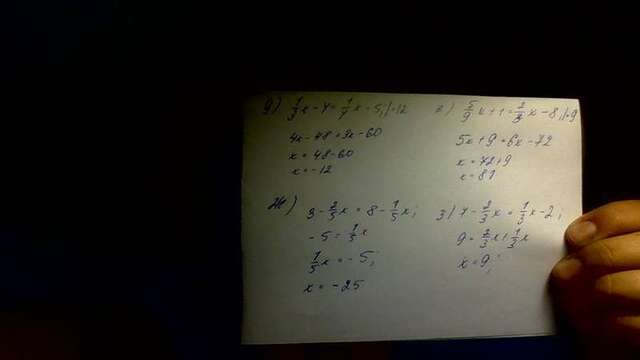 д) 1/3x-4=1/4x-5; |·12
4x-48=3x-60
x=48-60
x=-12
е) 5/9x+1=2/3x-8; |·9
5x+9=6x-72
x=72+9
x=81
ж) 3-2/5x=8-1/5x;
-5=1/5x
1/5x=-5;
x=-25
з) 7-2/3x=1/3x-2;
9=2/3x+1/3x
x=9;